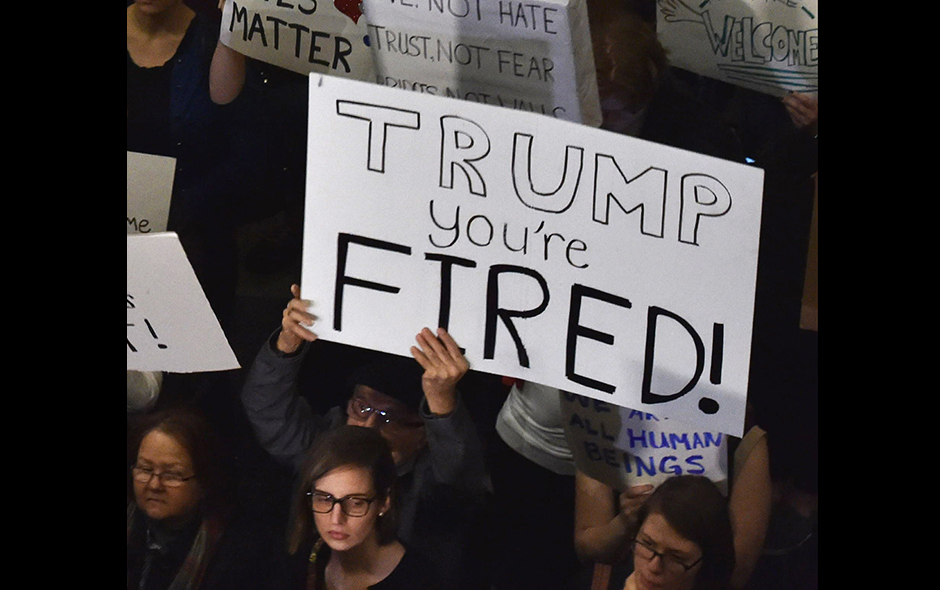 MATTER
NOT HATE
TRUST, NOT FEAR
NOT WALLS
WELCOME
TRUMP
you're
FIRED!
me
!
WE AR
ALL HUMAN
BEINGS